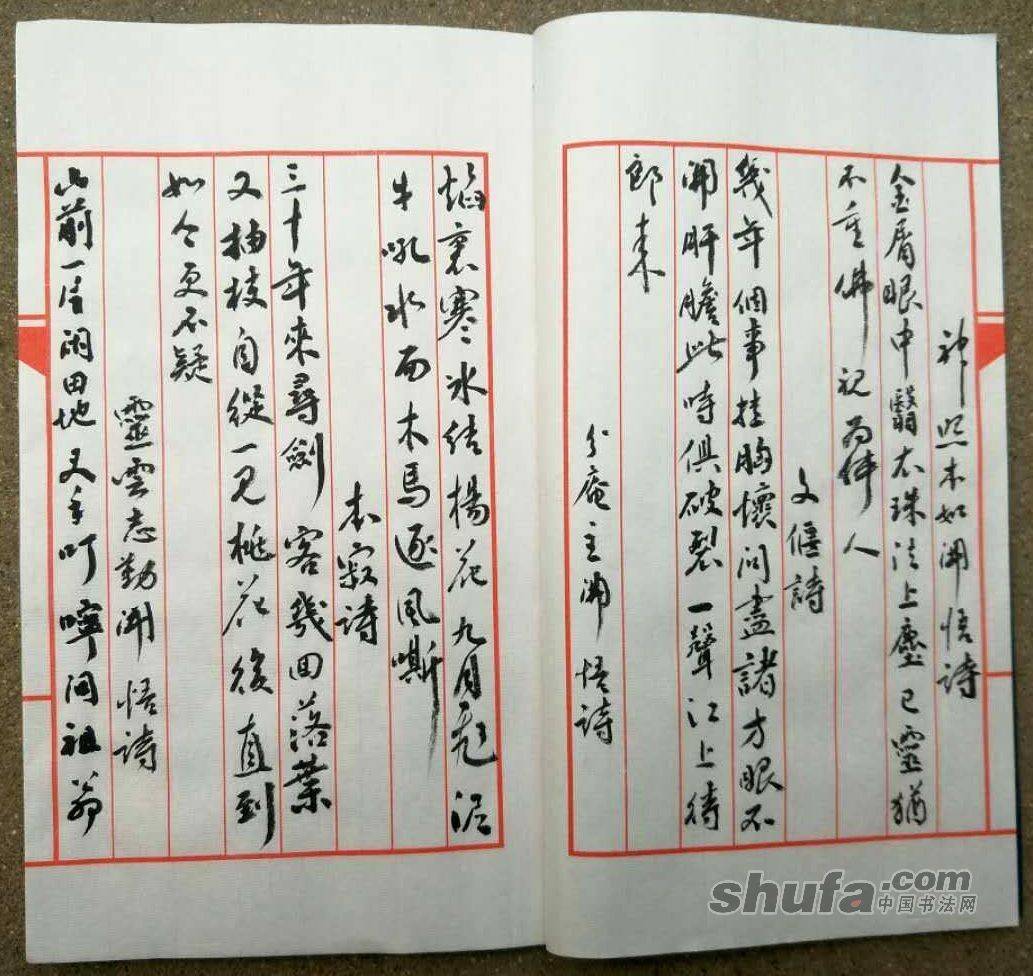 神照本如開悟詩
金屑眼中翳衣珠法上塵己靈猶
不重佛祖為何人
文偃詩
幾年個事挂胸懷問盡諸方眼不
開肝膽此時俱破裂一聲江上待
郎來
分庵主開悟詩
焰裏寒冰結楊花九月飛泥
牛吼水面木馬逐風嘶
本寂詩
三十年來尋劍客幾回落葉
又抽枝自從一見桃花後直到
如今更不疑
靈雲志勤開悟詩
山前一片閑田地叉手叮嚀問祖翁
shufa.com
中国书法网